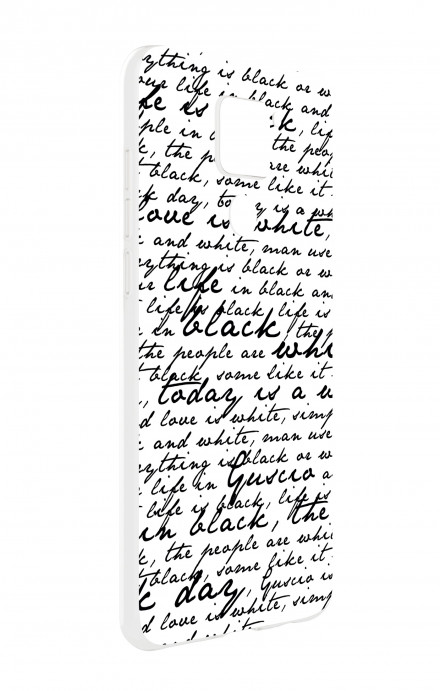 rything is black or w
our life in black and
fe is k, li
ple in the peop
k, the p re whit
t black, some like it
k day, to y is a wh
love is white,
k and white, man use
rything is black or w
ur life in black an
life is black, life is
in black, the p
the people are whi
t black, some like it
, today is a w
d love is white, simp
k and white, man use
rything is black or w
life in Guscio a
t life is black, life is
in black, the
k, the people are whi
t black, some like it
k day, Guscio is
d love is white, simp
d white